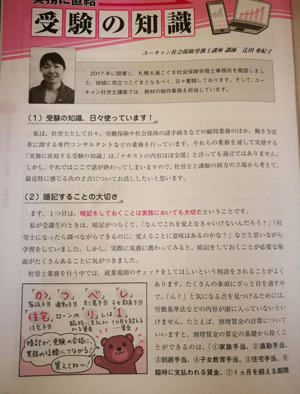 実務に直結
受験の知識
ユーキャン社会保険労務士講座 講師 辻田 亜紀子
2017年に開業し、札幌大通こぐま社会保険労務士事務所を開設しました。
地域に役立つこぐまとなるべく、日々奮闘しております。そして、ユーキャン社労士講座では、教材の制作業務を担当しています。
(1)受験の知識、日々使っています!
私は、社労士として日々、労働保険や社会保険の諸手続などの顧問業務のほか、働き方改
革に関する専門コンサルタントなどの業務を行っています。それらの業務を通して実感する
「実務に直結する受験の知識」は、「テキストの内容ほぼ全部」と言っても過言ではありません。
しかし、それではここで話が終わってしまいますので、社労士と講師の両方の立場から考えて、
最近特に感じる次の2点についてお話ししたいと思います。
(2)暗記することの大切さ
まず、1つ目は、暗記をしておくことは実務においても大切だということです。
私が受験生のときは、暗記がつらくて、「なんでこれを覚えなきゃいけないんだろう?」「社
労士になったら調べながらできるのに、覚えることに意味はあるのかな?」などと思いながら
学習をしていました。しかし、実際に実務に携わってみると、暗記をしておくことが必要な場
面がたくさんあることに気がつきました。
社労士業務を行う中では、就業規則のチェックをしてほしいという相談をされることがよく
あります。たくさんの条項にざっと目を通す中
で、「ん?」と気になる点を見つけるためには、
労働基準法などの内容が頭に入っていないとい
けません。たとえば、割増賃金の計算について
いいますと、割増賃金の算定の基礎から除くこ
とができるのは、「①家族手当、②通勤手当、
③別居手当、④子女教育手当、⑤住宅手当、⑥
臨時に支払われる賃金、⑦1ヵ月を超える期間
「か」「つ」「べ」「し」
家族手当 通勤手当 別居手当 子女教育手当
住宅ローンのりしは1
住宅手当
暗記が、受験の合格に、
実務の信頼につながる!
覚えてね~!